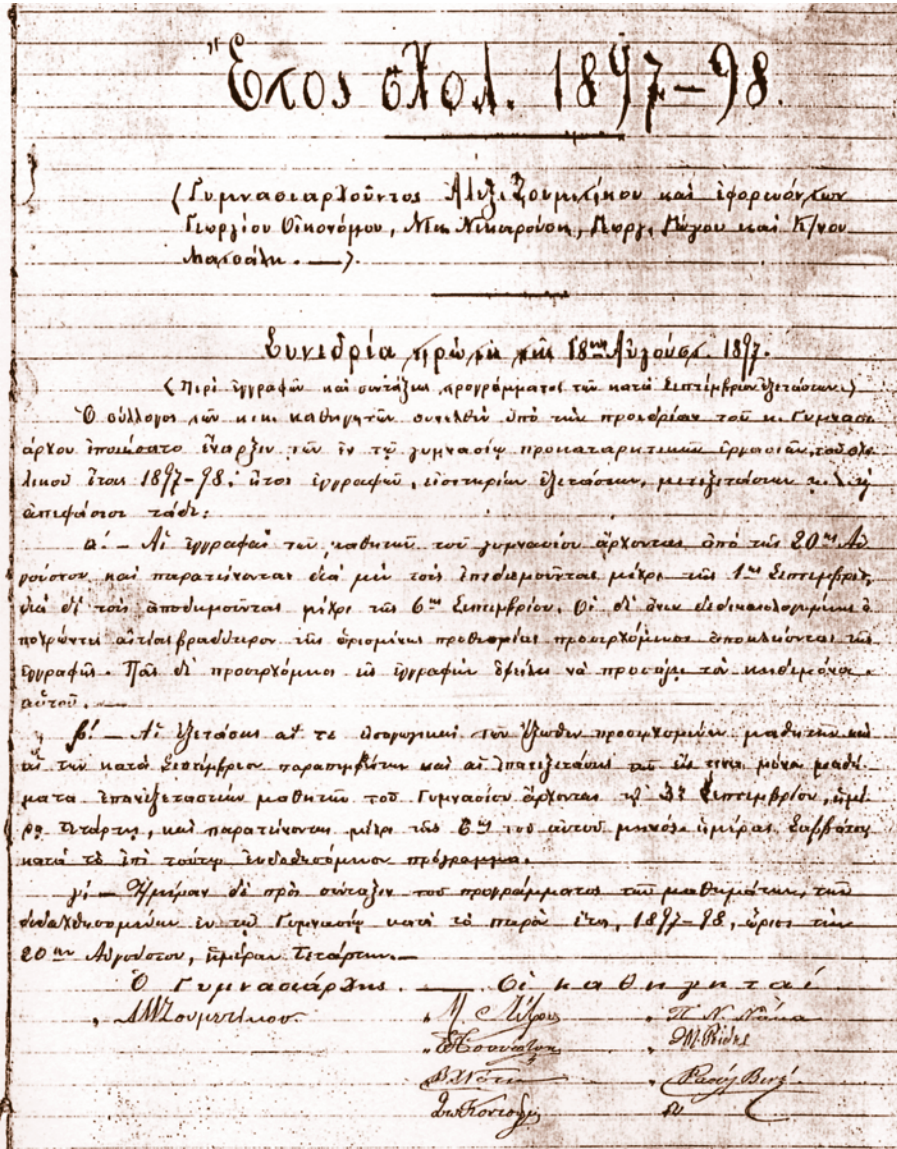 Ἔτος σχολ. 1897-98.
(Γυμνασιαρχοῦντος Ἀλεξ. Ζουμετίκου καὶ ἐφορευόντων
Γεωργίου Οἰκονόμου, Νικ. Νικαρούση, Γεωργ. καὶ Κ/νου
Ματσάλη. —).
Συνεδρία πρώτη τῆς 18ης Αὐγούστ. 1897.
(Περὶ ἐγγραφῶν καὶ συντάξεως προγράμματος τῶν κατὰ Σεπτέμβριον ἐξετάσεων.)
Ὁ σύλλογος τῶν κ.κ. καθηγητῶν συνελθὼν ὑπὸ τὴν προεδρίαν τοῦ κ. Γυμνασι-
άρχου ἐποιήσατο ἔναρξιν τῶν ἐν τῷ γυμνασίῳ προκαταρκτικῶν ἐργασιῶν τοῦ σχο-
λικοῦ ἔτους 1897-98, ἤτοι ἐγγραφῶν, εἰσιτηρίων ἐξετάσεων, μετεξετάσεων
ἀπεφάσισε τάδε:
α! — Αἱ ἐγγραφαὶ τῶν μαθητῶν τοῦ γυμνασίου ἄρχονται ἀπὸ τῆς 20ης Αὐ-
γούστου καὶ παρατείνονται διὰ μὲν τοὺς ἐπιδημοῦντας μέχρι τῆς 1ης Σεπτεμβρίου,
διὰ δὲ τοὺς ἀποδημοῦντας μέχρι τῆς 6ης Σεπτεμβρίου. Οἱ δὲ ἄνευ δεδικαιολογημένης ἀ-
ποχρώσης αἰτίας βραδύτερον τῆς ὁρισμένης προθεσμίας προσερχόμενοι ἀποκλείονται τῆς
ἐγγραφῆς. Πᾶς δὲ προσερχόμενος εἰς ἐγγραφὴν ὀφείλει νὰ προσάγῃ τὸν κηδεμόνα
αὐτοῦ. —
β! — Αἱ ἐξετάσεις αἵ τε εἰσαγωγικαὶ τῶν ἔξωθεν προσερχομένων μαθητῶν καὶ
αἱ τῶν κατὰ Σεπτέμβριον παραπεμφθέντων καὶ αἱ ἐπανεξετάσεις τῶν εἴς τινα μόνα μαθή-
ματα ἐπανεξεταστέων μαθητῶν τοῦ Γυμνασίου ἄρχονται τῇ 3ῃ Σεπτεμβρίου, ἡμέ-
ρᾳ Τετάρτῃ, καὶ παρατείνονται μέχρι τῆς 6ης τοῦ αὐτοῦ μηνός, ἡμέρας Σαββάτου,
κατὰ τὸ ἐπὶ τούτῳ ἐκδοθησόμενον πρόγραμμα.
γ! — Ἡμέραν δὲ πρὸς σύνταξιν τοῦ προγράμματος τῶν μαθημάτων, τῶν
διδαχθησομένων ἐν τῷ Γυμνασίῳ κατὰ τὸ παρὸν ἔτος, 1897-98, ὥρισε τὴν
20ην Αὐγούστου, ἡμέραν Τετάρτην. —
Ὁ Γυμνασιάρχης. — Οἱ καθηγηταί
Ζουμετίκου. Π. Ν. Νάκα